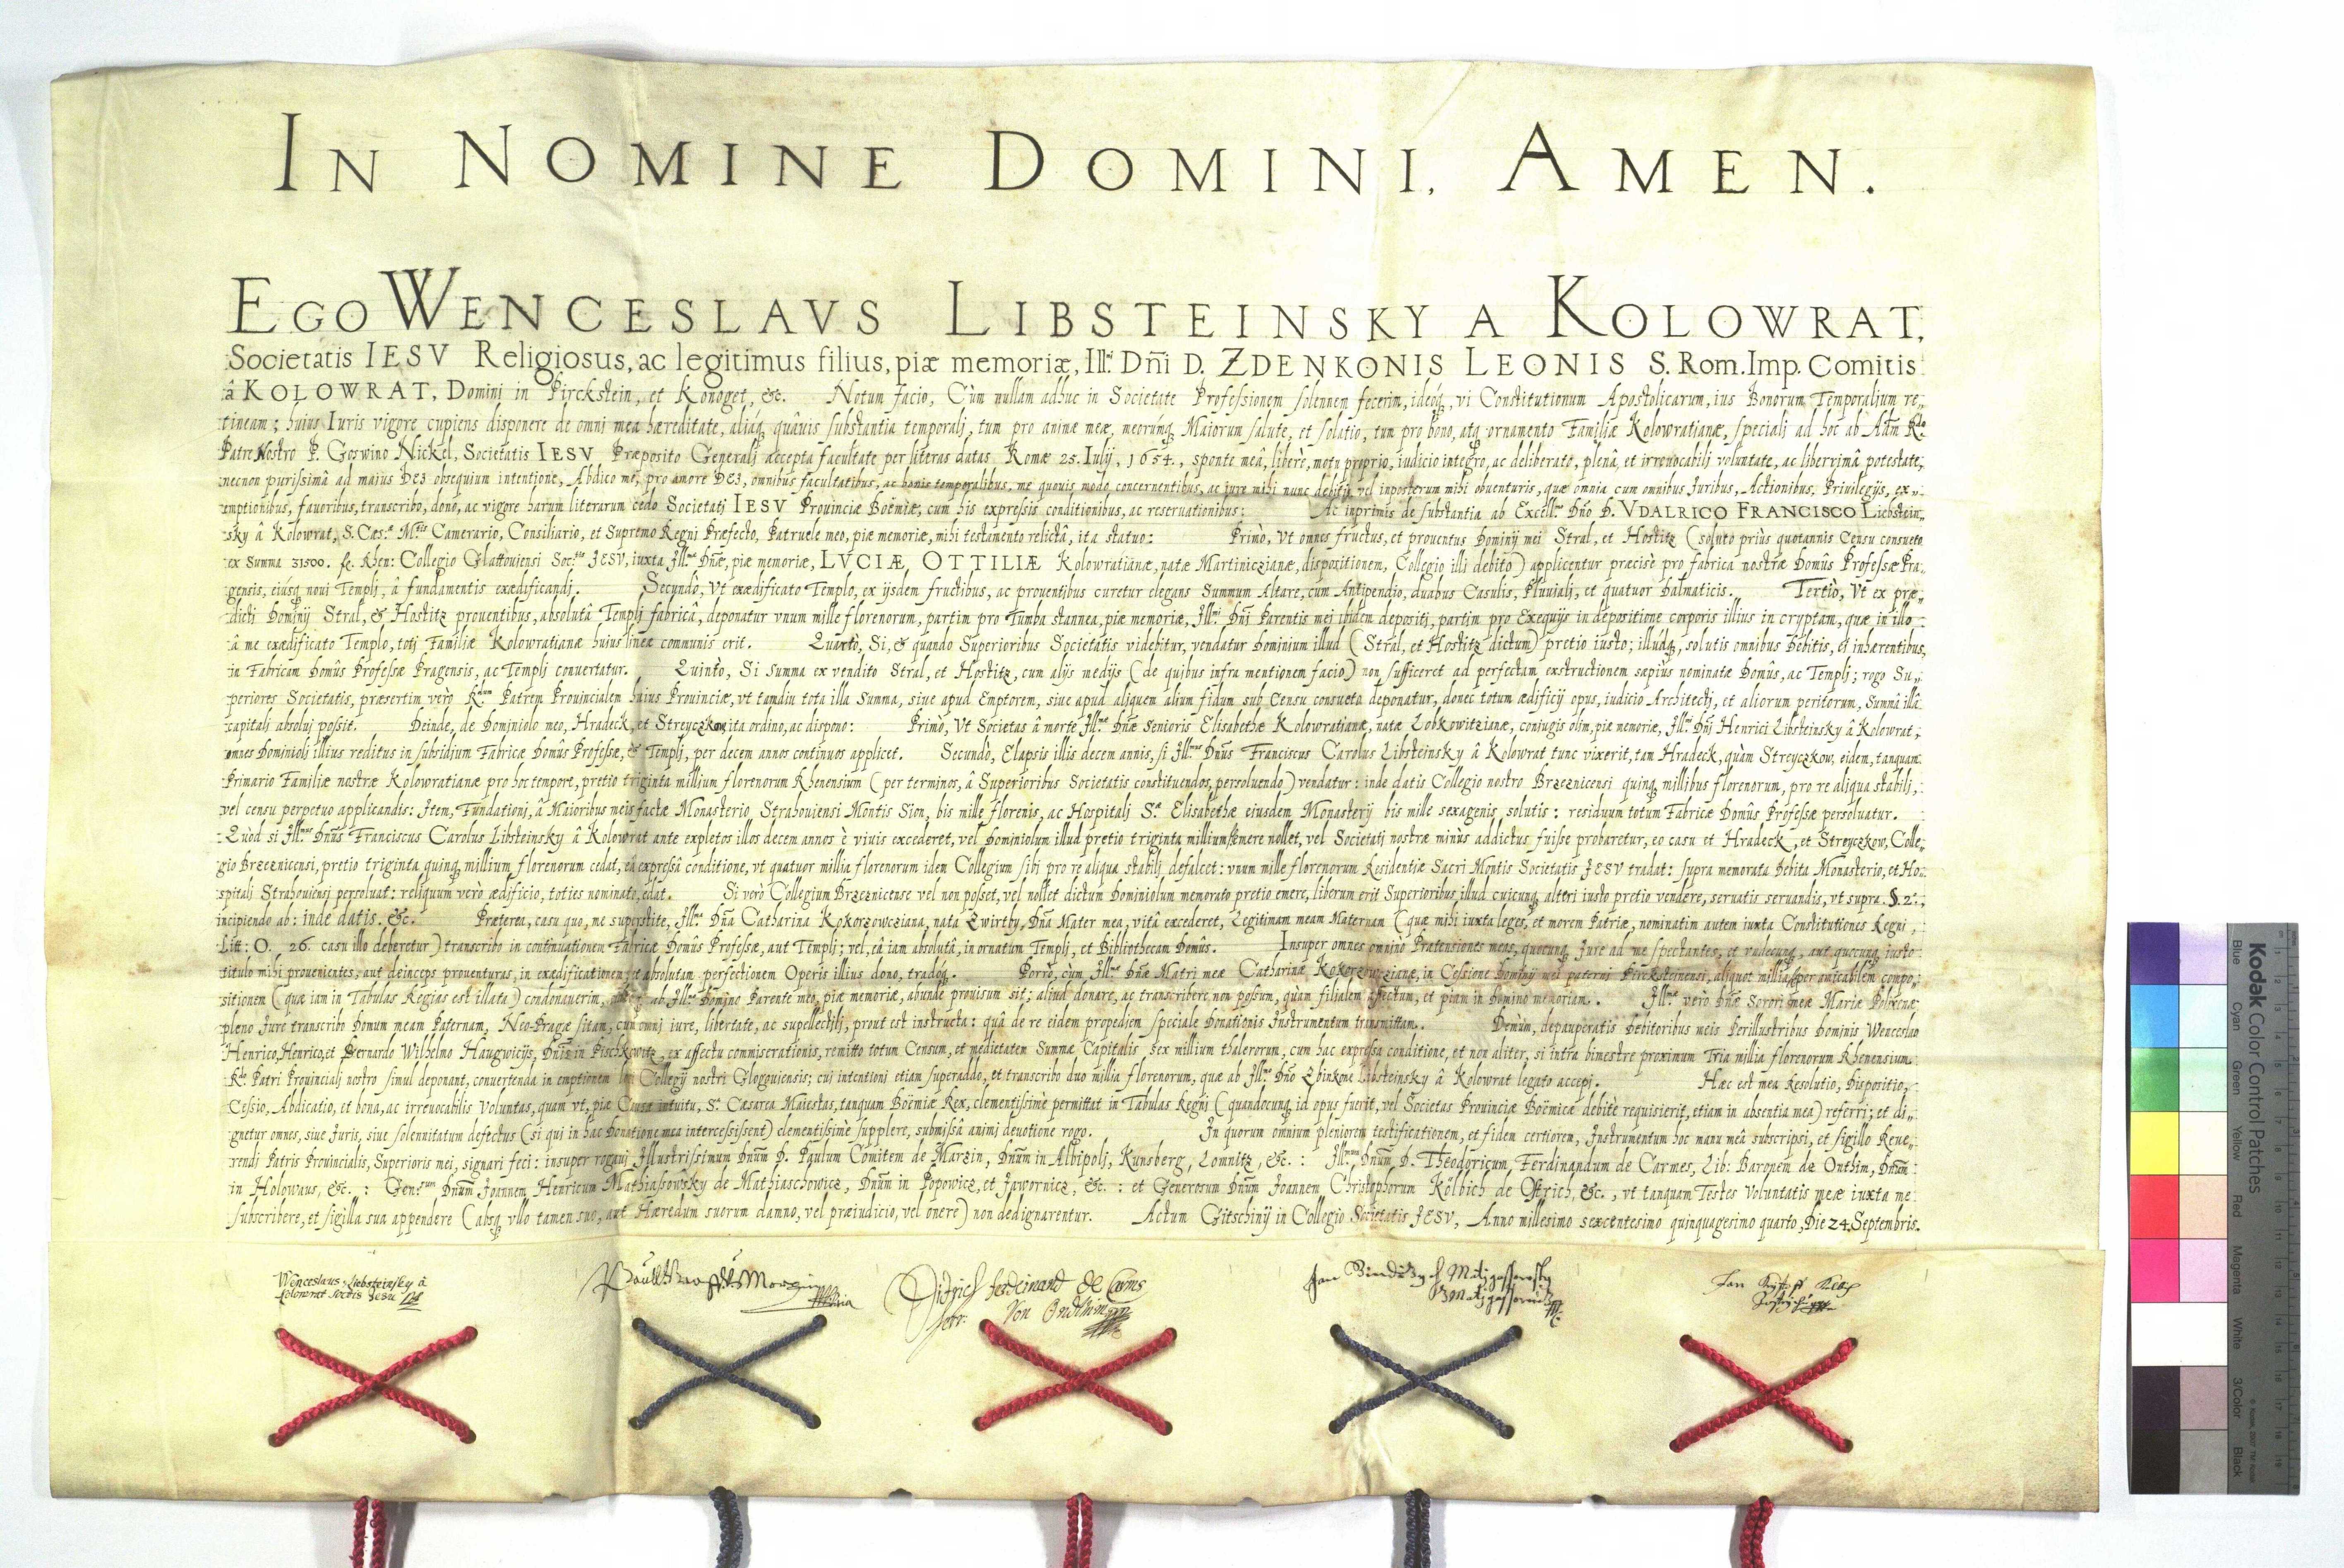 IN NOMINE DOMINI. AMEN.
EGO WENCESLAVS LIBSTEINSKY A KOLOWRAT,
Societatis IESV Religiosus, ac legitimus filius, piæ memoriæ, Ill.mi Dñi D. ZDENKONIS LEONIS S. Rom. Imp. Comitis
â KOLOWRAT, Domini in Pirckstein, et Konoget, &c. Notum facio, Cùm nullam adhuc in Societate Professionem solennem fecerim, ideóq, vi Constitutionum Apostolicarum, ius Bonorum Temporalium re„
tineam; huius Iuris vigore cupiens disponere de omni mea hæreditate, aliáq quâuis substantia temporalj, tum pro animæ meæ, meorumq Maiorum salute, et solatio, tum pro bono, atq ornamento Familiæ Kolowratianæ, specialj ad hoc ab Adm R.do
Patre Nostro P. Goswino Nickel, Societatis IESV Præposito Generalj accepta facultate per literas datas Romæ 25. Iulij, 1654., sponte meâ, liberè, motu proprio, iudicio integro, ac deliberato, plenâ, et irreuocabilj voluntate, ac liberrimâ potestate,
necnon purissimâ ad maius DEJ obsequium intentione, Abdico mè, pro amore DEJ, omnibus facultatibus, ac bonis temporalibus, me quouis modo concernentibus, ac jure mihi nunc debitis, vel inposterum mihi obuenturis, quæ omnia cum omnibus Juribus, Actionibus, Priuilegijs, ex„
emptionibus, fauoribus, transcribo, dono, ac vigore harum literarum cedo Societatj IESV Prouinciæ Boëmiæ, cum his expressis conditionibus, ac reseruationibus: Ac inprimis de substantia ab Excell.mo Dño D. VDALRICO FRANCISCO Liebstein„
sky â Kolowrat, S. Cæs.æ M.tis Camerario, Consiliario, et Supremo Regni Præfecto, Patruele meo, piæ memoriæ, mihi testamento relictâ, ita statuo: Primò, Vt omnes fructus, et prouentus Dominij mei Stral, et Hostitz (soluto priùs quotannis Censu consueto
ex Summa 31500. fl. Rhen: Collegio Glattouiensi Soc.tis JESV, iuxta Ill.mæ Dñæ, piæ memoriæ, LVCIÆ OTTILIÆ Kolowratianæ, natæ Martiniczianæ, dispositionem, Collegio illi debito) applicentur præcisè pro fabrica nostræ Domûs Professæ Pra„
gensis, eiúsq noui Templj, â fundamentis exædificandj. Secundò, Vt exædificato Templo, ex ijsdem fructibus, ac prouentibus curetur elegans Summum Altare, cum Antipendio, duabus Casulis, Pluuialj, et quatuor Dalmaticis. Tertiò, Vt ex præ„
dicti Dominij Stral, & Hostitz prouentibus, absolutâ Templj fabricâ, deponatur vnum mille florenorum, partim pro Tumba stannea, piæ memoriæ, Ill.mi Dñj Parentis mei ibidem depositj, partim pro Exequijs in depositione corporis illius in cryptam, quæ in illo
â me exædificato Templo, totj Familiæ Kolowratianæ huius lineæ communis erit. Quartò, Si, & quando Superioribus Societatis videbitur, vendatur Dominium illud (Stral, et Hostitz dictum) pretio iusto; illúdq, solutis omnibus Debitis, ei inhærentibus,
in Fabricam Domûs Professæ Pragensis, ac Templj conuertatur. Quintò, Si Summa ex vendito Stral, et Hostitz, cum alijs medijs (de quibus infra mentionem facio) non sufficeret ad perfectam exstructionem sæpiùs nominatæ Domûs, ac Templj; rogo Su„
periores Societatis, præsertim verò R.dum Patrem Prouincialem huius Prouinciæ, vt tamdiu tota illa Summa, siue apud Emptorem, siue apud aliquem alium fidum sub Censu consueto deponatur, donec totum ædificij opus, iudicio Architectj, et aliorum peritorum, Summâ illâ
capitali absoluj possit. Deinde, de Dominiolo meo, Hradeck, et Streyczkow, ita ordino, ac dispono: Primò, Vt Societas â morte Ill.mæ Dñæ Senioris Elisabethæ Kolowratianæ, natæ Lobkowitzianæ, coniugis olim, piæ memoriæ, Ill.mi Dñj Henrici Libsteinsky â Kolowrat,
omnes Dominiolj illius reditus in subsidium Fabricæ Domûs Professæ, & Templj, per decem annos continuos applicet. Secundò, Elapsis illis decem annis, si Ill.mus Dñus Franciscus Carolus Libsteinsky â Kolowrat tunc vixerit, tam Hradeck, quàm Streyczkow, eidem, tanquam
Primario Familiæ nostræ Kolowratianæ pro hoc tempore, pretio triginta millium florenorum Rhenensium (per terminos, â Superioribus Societatis constituendos, persoluendo) vendatur: inde datis Collegio nostro Brzeznicensi quinq millibus florenorum, pro re aliqua stabilj,
vel censu perpetuo applicandis: Item, Fundationj, â Maioribus meis factæ Monasterio, Strahouiensi Montis Sion, bis mille florenis, ac Hospitalj S.æ Elisabethæ eiusdem Monasterij bis mille sexagenis solutis: residuum totum Fabricæ Domûs Professæ persoluatur.
Quòd si Ill.mus Dñus Franciscus Carolus Libsteinsky â Kolowrat ante expletos illos decem annos è viuis excederet, vel Dominiolum illud pretio triginta millium emere nollet, vel Societatj nostræ minùs addictus fuisse probaretur, eo casu et Hradeck, et Streyczkow, Colle„
gio Brzeznicensi, pretio triginta quinq millium florenorum cedat, eâ expressâ conditione, vt quatuor millia florenorum idem Collegium sibi pro re aliqua stabilj defalcet: vnum mille florenorum Residentiæ Sacri Montis Societatis JESV tradat: supra memorata Debita Monasterio, et Ho„
spitalj Strahouiensj persoluat: reliquum verò ædificio, toties nominato, edat. Si verò Collegium Brzeznicense vel non posset, vel nollet dictum Dominiolum memorato pretio emere, liberum erit Superioribus, illud cuicunq alteri iusto pretio vendere, seruatis seruandis, vt supra §. 2.
incipiendo ab: inde datis. &c. Præterea, casu quo, me superstite, Ill.ma Dña Catharina Kokorzowcziana, nata Zwirtby, Dña Mater mea, vitâ excederet, Legitimam meam Maternam (quæ mihi iuxta leges, et morem Patriæ, nominatim autem iuxta Constitutiones Regni,
Litt: O. 26. casu illo deberetur) transcribo in continuationem Fabricæ Domûs Professæ, aut Templj; vel, eâ iam absolutâ, in ornatum Templj, et Bibliothecam Domûs. Insuper omnes omnino Prætensiones meas, quocunq Jure ad me spectantes, et undecunq, aut quocunq iusto
titulo mihi prouenientes, aut deinceps prouenturas, in exædificationem, et absolutam perfectionem Operis illius dono, tradóq. Porrò, cùm Ill.mæ Dñæ Matri meæ Catharinæ Kokorzowczianæ, in Cessione Dominij mei paterni Pircksteinensi, aliquot millia per amicabilem compo„
sitionem (quæ iam in Tabulas Regias est illata) condonauerim, ab Ill.mo Domino Parente meo, piæ memoriæ, abunde prouisum sit; aliud donare, ac transcribere non possum, quàm filialem affectum, et piam in Domino memoriam. Ill.mæ verò Dñæ Sorori meæ Mariæ Polixenæ
pleno Jure transcribo Domum meam Paternam, Neo-Pragæ sitam, cum omnj iure, libertate, ac supellectilj, prout est instructa: quâ de re eidem propediem speciale Donationis Instrumentum transmittam. Demùm, depauperatis Debitoribus meis Perillustribus Dominis Wenceslao
Henrico, Henrico, et Bernardo Wilhelmo Haugwicijs, Dñis in Pischkowitz, ex affectu commiserationis, remitto totum Censum, et medietatem Summæ Capitalis, sex millium thalerorum, cum hac expressa conditione, et non aliter, si intra bimestre proximum Tria millia florenorum Rhenensium
R.do Patri Prouincialj nostro simul deponant, conuertenda in emptionem Collegij nostri Glogouiensis; cui intentioni etiam superaddo, et transcribo duo millia florenorum, quæ ab Ill.mo Dño Zbinkone Libsteinsky â Kolowrat legato accepj. Hæc est mea Resolutio, Dispositio,
Cessio, Abdicatio, et bona, ac irreuocabilis Voluntas, quam vt, piæ Causæ intuitu, S.a Cæsarea Maiestas, tanquam Boëmiæ Rex, clementissimè permittat in Tabulas Regnj (quandocunq id opus fuerit, vel Societas Prouinciæ Boëmicæ debitè requisierit, etiam in absentia mea) referri; et di„
gnetur omnes, siue Juris, siue solennitatum defectus (si qui in hac Donatione mea intercessissent) clementissimè supplere, submissâ animi deuotione rogo. In quorum omnium pleniorem testificationem, et fidem certiorem, Instrumentum hoc manu meâ subscripsi, et sigillo Reue„
rendj Patris Prouincialis, Superioris mei, signari feci: insuper rogauj Illustrissimum Dñum D. Paulum Comitem de Marzin, Dñum in Albipolj, Kunsberg, Lomnitz, &c.: Ill.mum Dñum D. Theodoricum Ferdinandum de Carmes, Lib: Baronem de Onthim, Dñum
in Holowaus, &c.: Gen.sum Dñum Joannem Henricum Mathiassowsky de Mathiaschowicz, Dñum in Popowicz, et Jawornicz, &c.: et Generosum Dñum Joannem Christophorum Kölbich de Ostrich, &c., vt tanquam Testes Voluntatis meæ iuxta me
subscribere, et sigilla sua appendere (absq vllo tamen suo, aut Hæredum suorum damno, vel præiudicio, vel onere) non dedignarentur. Actum Gitschinij in Collegio Societatis JESV, Anno millesimo sexcentesimo quinquagesimo quarto, Die 24. Septembris.
Wenceslaus Liebsteinsky â
Kolowrat Socitis Jesu
Paull Morzin
Dietrich Ferdinand De Carms
Herr Von
Jan
Jan
Kodak Color Control Patches
Blue Cyan Green Yellow Red Magenta White 3/Color Black